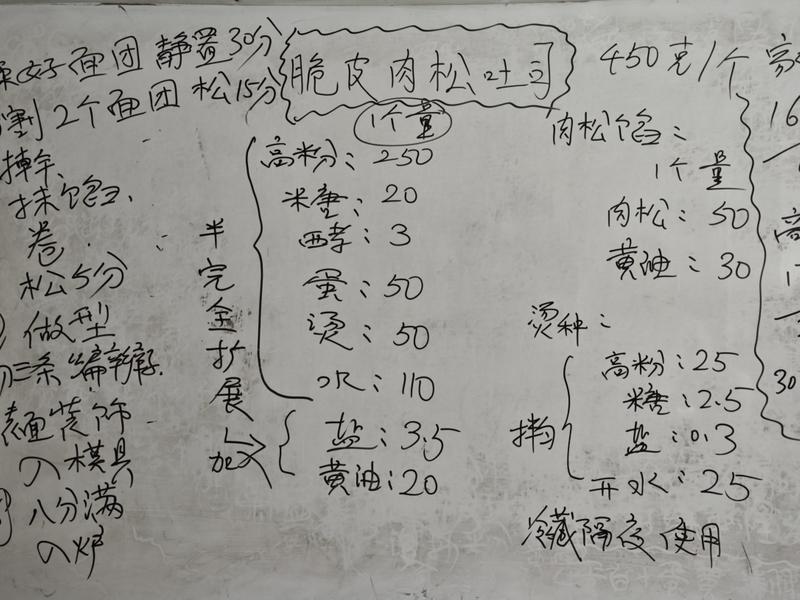 脆皮肉松吐司
1个量
450克/1个
好面团 静置30分
割2个面团 松15分
擀
抹馅
卷
松5分
做型
三条编辫子
表面装饰
入模具
八分满
入炉
半完全扩展
高粉：250
米唐：20
酵：3
蛋：50
烫：50
水：110
加入
盐：3.5
黄油：20
肉松馅：
1个量
肉松：50
黄油：30
烫种：
高粉：25
糖：2.5
盐：0.3
拌匀
开水：25
冷藏隔夜使用
16
高
30